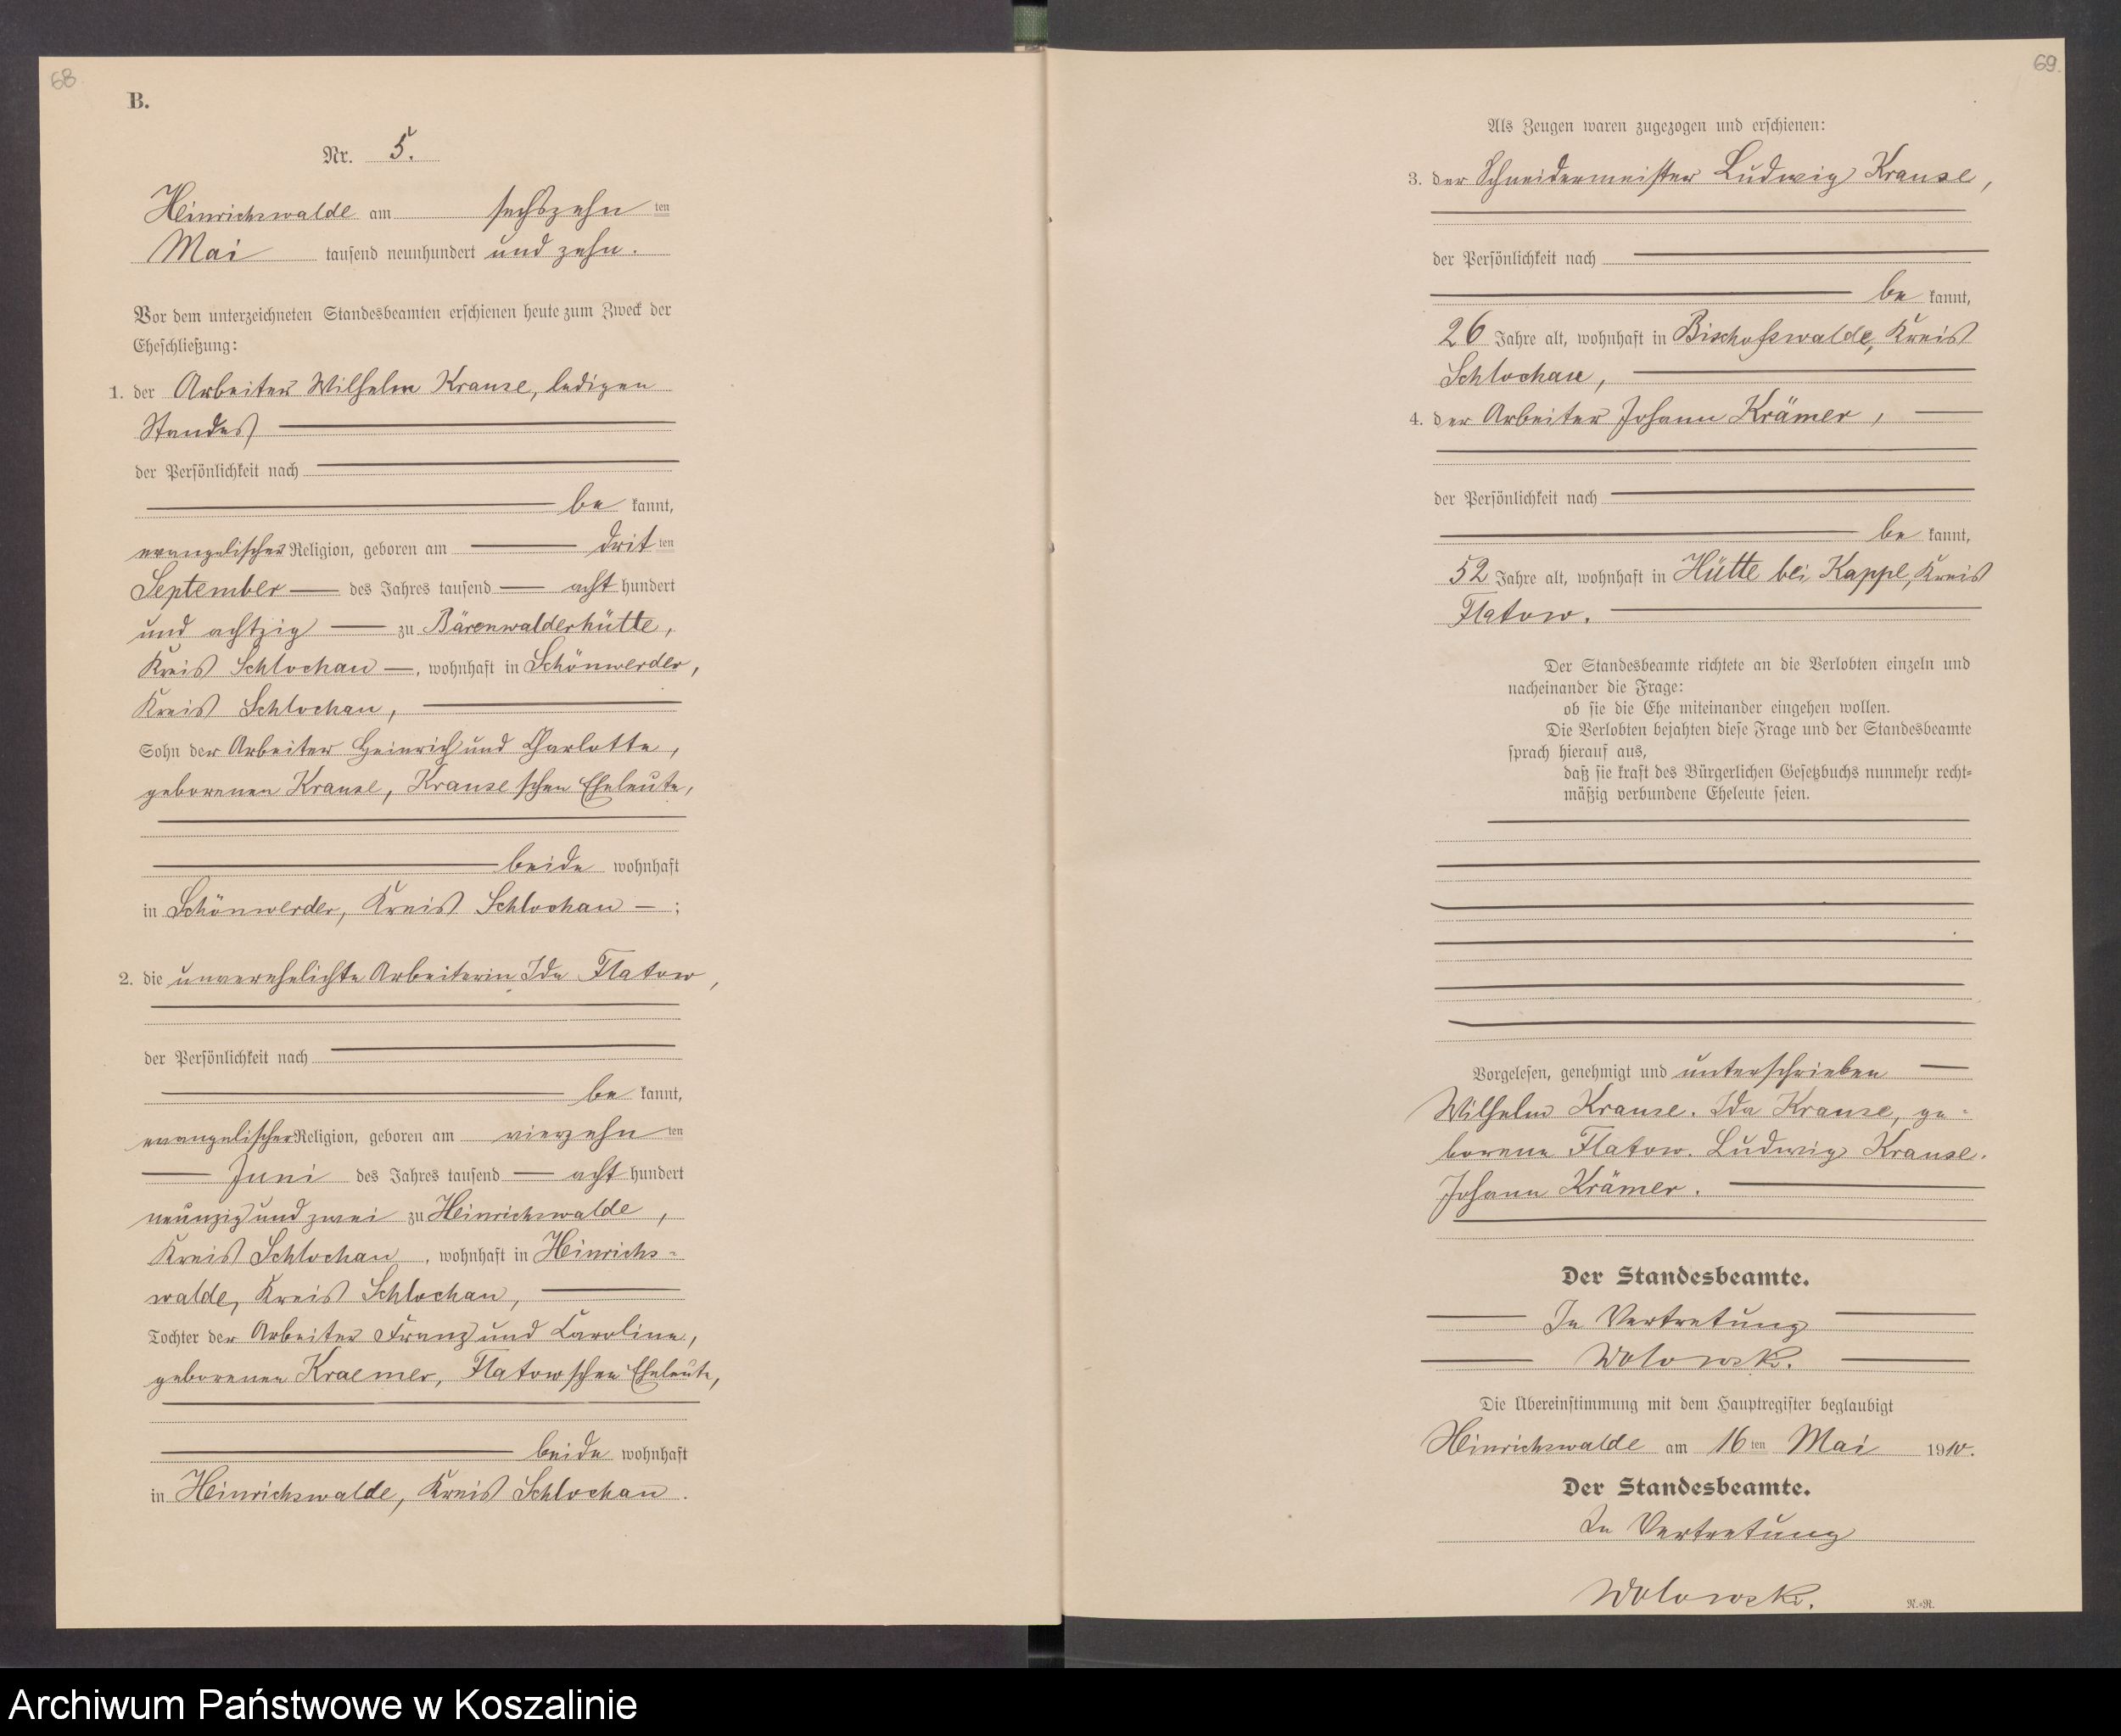 68
B.
Nr. 5.
Heinrichswalde am sechszehn ten
Mai tausend neunhundert und zehn.
Vor dem unterzeichneten Standesbeamten erschienen heute zum Zweck der
Eheschließung:
1. der Arbeiter Wilhelm Krause, ledigen
Standes
der Persönlichkeit nach
be kannt,
evangelischer Religion, geboren am drit ten
September des Jahres tausend acht hundert
und achtzig zu Bärenwalderhütte,
Kreis Schlochau, wohnhaft in Schönwerder,
Kreis Schlochau,
Sohn der Arbeiter Heinrich und Charlotte,
geborenen Krause, Krause schen Eheleute,
beide wohnhaft
in Schönwerder, Kreis Schlochau;
2. die unverehelichte Arbeiterin Ida Flatow,
der Persönlichkeit nach
be kannt,
evangelischer Religion, geboren am vierzehn ten
Juni des Jahres tausend acht hundert
neunzig und zwei zu Heinrichswalde,
Kreis Schlochau, wohnhaft in Heinrichs-
walde, Kreis Schlochau,
Tochter der Arbeiter Franz und Caroline,
geborenen Kraemer, Flatow schen Eheleute,
beide wohnhaft
in Heinrichswalde, Kreis Schlochau.
69.
Als Zeugen waren zugezogen und erschienen:
3. der Schneidermeister Ludwig Krause,
der Persönlichkeit nach
be kannt,
26 Jahre alt, wohnhaft in Bischofswalde, Kreis
Schlochau,
4. der Arbeiter Johann Krämer,
der Persönlichkeit nach
be kannt,
52 Jahre alt, wohnhaft in Hütte bei Kappe, Kreis
Flatow.
Der Standesbeamte richtete an die Verlobten einzeln und
nacheinander die Frage:
ob sie die Ehe miteinander eingehen wollen.
Die Verlobten bejahten diese Frage und der Standesbeamte
sprach hierauf aus,
daß sie kraft des Bürgerlichen Gesetzbuchs nunmehr recht-
mäßig verbundene Eheleute seien.
Vorgelesen, genehmigt und unterschrieben
Wilhelm Krause. Ida Krause, ge-
borene Flatow. Ludwig Krause.
Johann Krämer.
Der Standesbeamte.
In Vertretung
Wolowski.
Die Übereinstimmung mit dem Hauptregister beglaubigt
Heinrichswalde am 16 ten Mai 1910.
Der Standesbeamte.
In Vertretung
Wolowski.
N.-R.
Archiwum Państwowe w Koszalinie